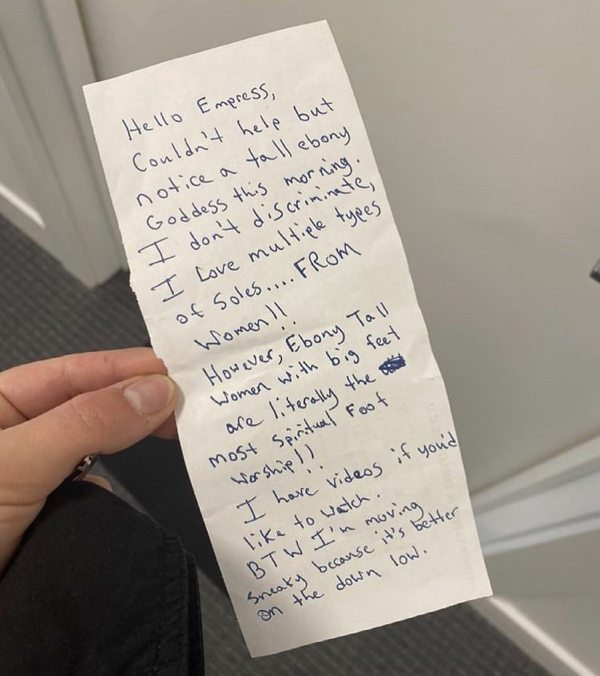 Hello Empress,
Couldn't help but
notice a tall ebony
Goddess this morning.
I don't discriminate,
I Love multiple types
of Soles.... FROM
Women!!
However, Ebony Tall
Women with big feet
are literally the
most Spiritual Foot
Worship!!
I have videos if you'd
like to watch.
BTW I'm moving
Sneaky because it's better
on the down low.